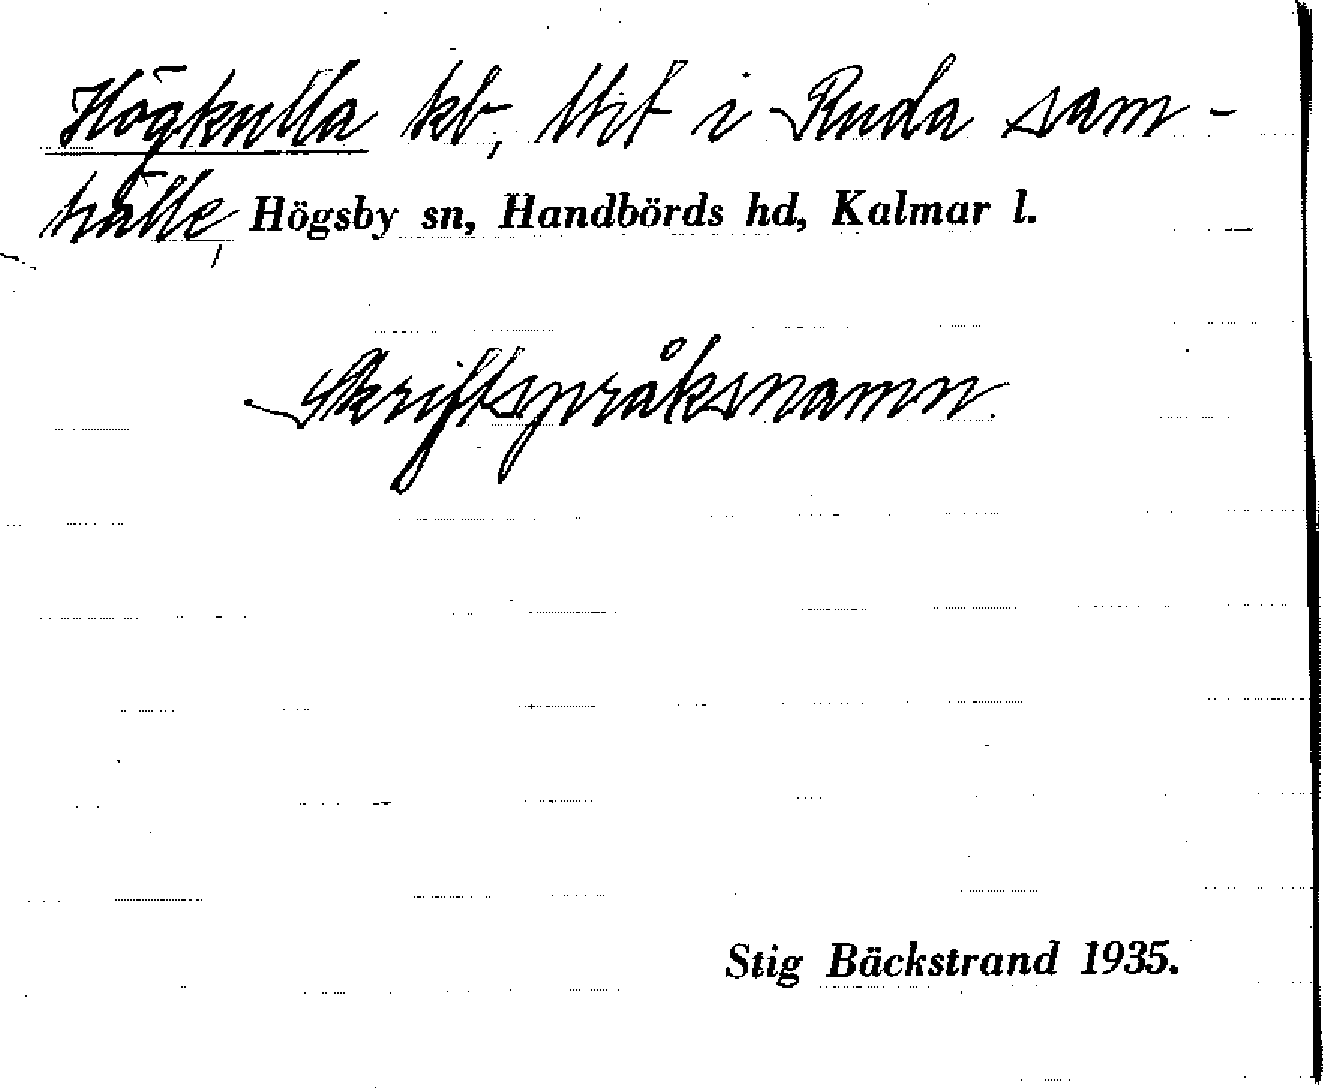 Högkulla kb, litt i Ruda sam-
hälle, Högsby sn, Handbörds hd, Kalmar l.
Skriftspråksnamn.
Stig Bäckstrand 1935.